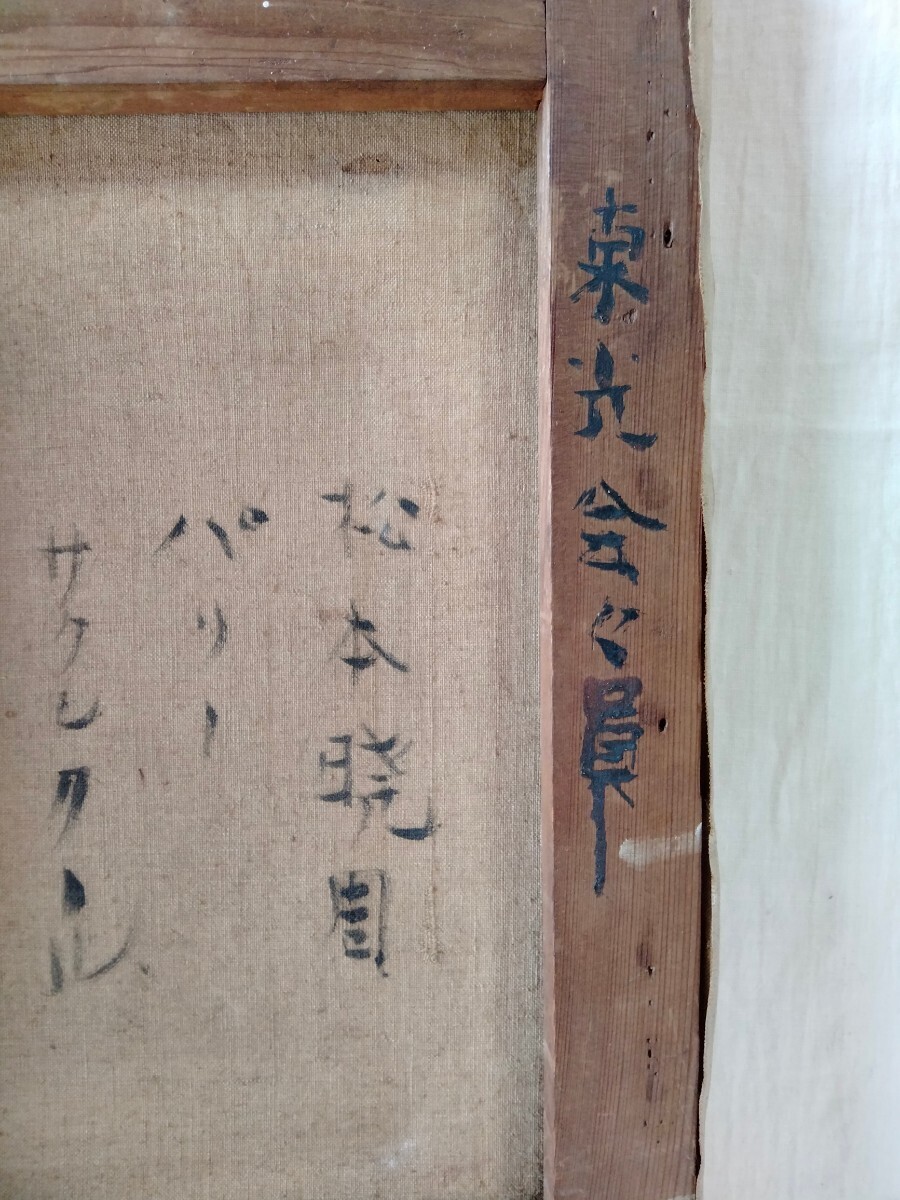 東光会々員
松本暁園
パリー
サクレクール